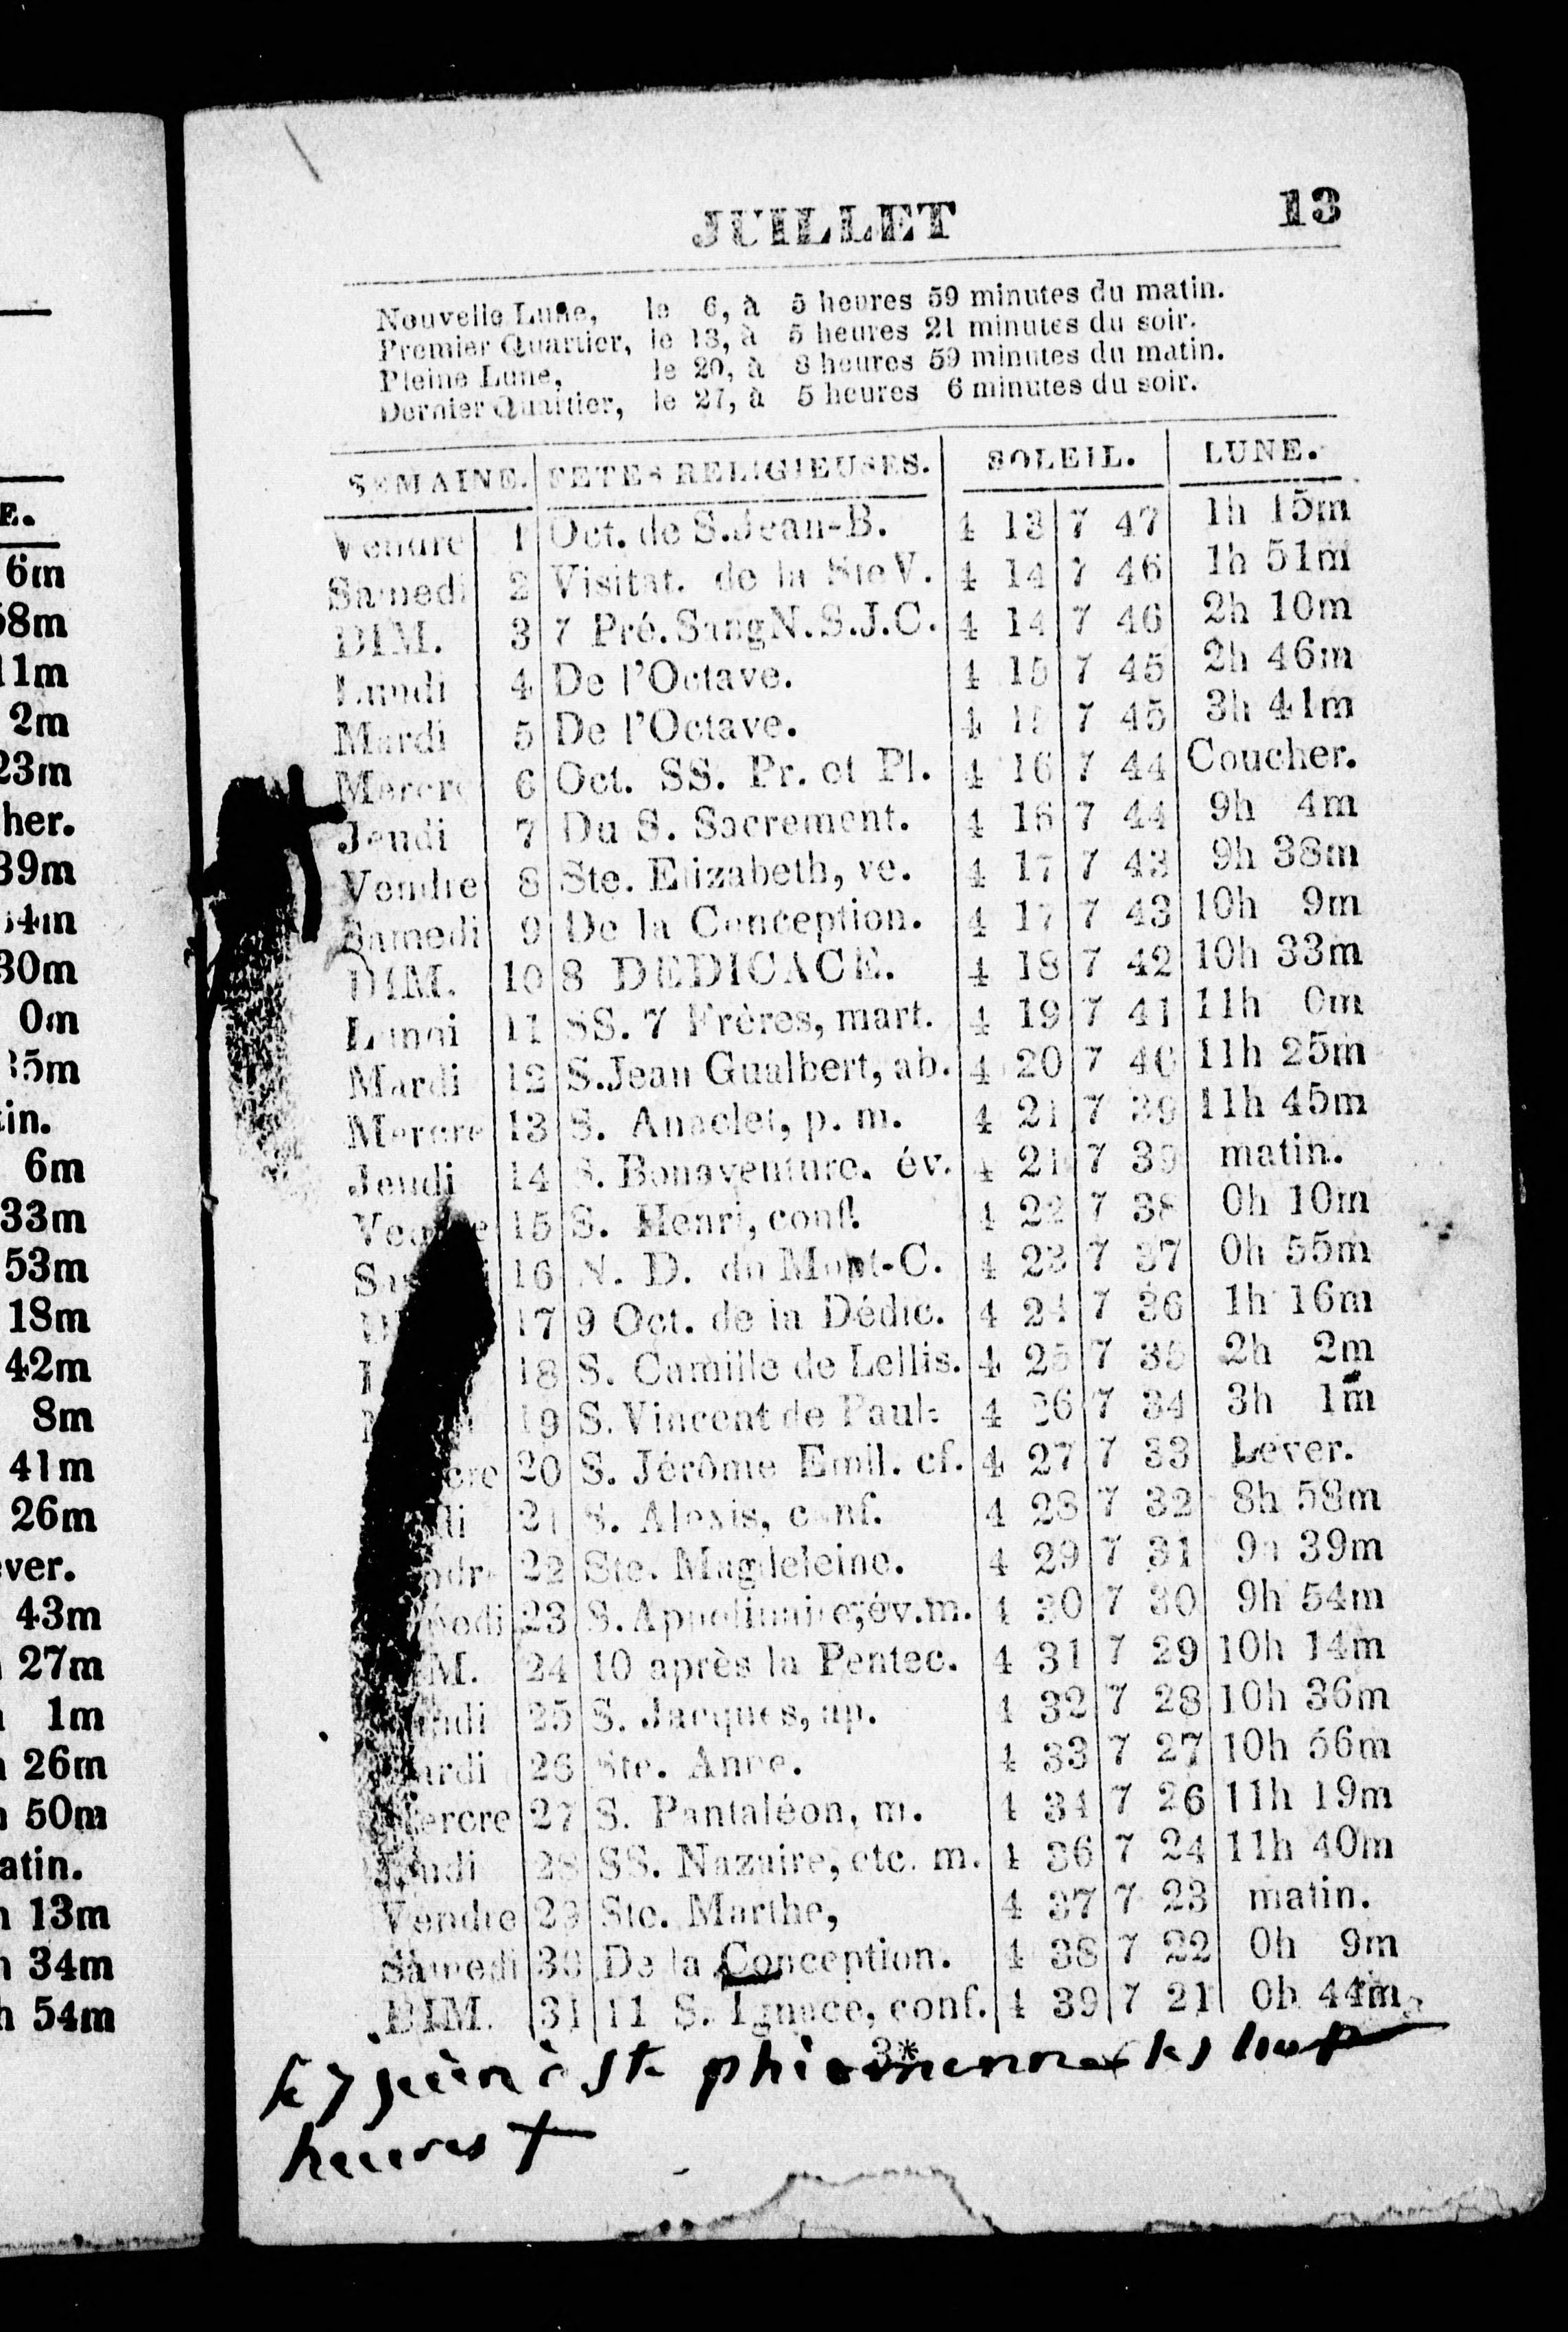 JUILLET 13
Nouvelle Lune, le 6, à 5 heures 59 minutes du matin.
Premier Quartier, le 13, à 5 heures 21 minutes du soir.
Pleine Lune, le 20, à 8 heures 59 minutes du matin.
Dernier Quartier, le 27, à 5 heures 6 minutes du soir.
SEMAINE. FETES RELIGIEUSES. SOLEIL. LUNE.
Vendre 1 Oct. de S. Jean-B. 4 13 7 47 1h 15m
Samedi 2 Visitat. de la Ste V. 4 14 7 46 1h 51m
DIM. 3 7 Pré. Sang N. S. J. C. 4 14 7 46 2h 10m
Lundi 4 De l'Octave. 4 15 7 45 2h 46m
Mardi 5 De l'Octave. 4 15 7 45 3h 41m
Mercre 6 Oct. SS. Pr. et Pl. 4 16 7 44 Coucher.
Jeudi 7 Du S. Sacrement. 4 16 7 44 9h 4m
Vendre 8 Ste. Elizabeth, ve. 4 17 7 43 9h 38m
Samedi 9 De la Conception. 4 17 7 43 10h 9m
DIM. 10 8 DEDICACE. 4 18 7 42 10h 33m
Lundi 11 SS. 7 Frères, mart. 4 19 7 41 11h 0m
Mardi 12 S. Jean Gualbert, ab. 4 20 7 40 11h 25m
Mercre 13 S. Anaclet, p. m. 4 21 7 39 11h 45m
Jeudi 14 S. Bonaventure. év. 4 21 7 39 matin.
15 S. Henri, conf. 4 22 7 38 0h 10m
16 N. D. du Mont-C. 4 23 7 37 0h 55m
17 9 Oct. de la Dédic. 4 24 7 36 1h 16m
18 S. Camille de Lellis. 4 25 7 35 2h 2m
19 S. Vincent de Paul. 4 26 7 34 3h 1m
cre 20 S. Jérôme Emil. cf. 4 27 7 33 Lever.
di 21 S. Alexis, conf. 4 28 7 32 8h 58m
ndre 22 Ste. Magdeleine. 4 29 7 31 9h 39m
medi 23 S. Apollinaire, év. m. 4 30 7 30 9h 54m
M. 24 10 après la Pentec. 4 31 7 29 10h 14m
undi 25 S. Jacques, ap. 4 32 7 28 10h 36m
ardi 26 Ste. Anne. 4 33 7 27 10h 56m
Mercre 27 S. Pantaléon, m. 4 34 7 26 11h 19m
Jeudi 28 SS. Nazaire, etc. m. 4 36 7 24 11h 40m
Vendre 29 Ste. Marthe, 4 37 7 23 matin.
Samedi 30 De la Conception. 4 38 7 22 0h 9m
DIM. 31 11 S. Ignace, conf. 4 39 7 21 0h 44m
3*
7 à Ste
heures +
E.
6m
58m
11m
2m
23m
her.
39m
54m
30m
0m
35m
tin.
6m
33m
53m
18m
42m
8m
41m
26m
ever.
43m
27m
1m
26m
50m
atin.
h 13m
h 34m
h 54m